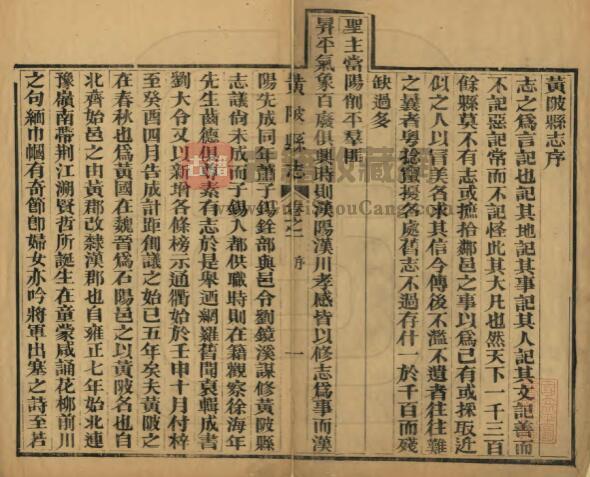 黃陂縣志序
志之爲言記也記其地記其事記其人記其文記善而
不記惡記常而不記怪此其大凡也然天下一千三百
餘縣莫不有志或摭拾鄰邑之事以爲己有或採取近
似之人以冒美名求其信今傳後不濫不遺者往往難
之義者粤捻竄擾各處舊志不過存什一於千百而殘
缺過多
聖主當陽削平羣匪
昇平氣象百廢俱興時則漢陽漢川孝感皆以修志爲事而漢
黃陂縣志 卷之一 序 一
陽先成同年蕭子錫銓部與邑令劉鏡溪謀修黃陂縣
志議尙未成而子錫入都供職時則在籍觀察徐海年
先生齒德俱尊素有志於是舉迺網羅舊聞裒輯成書
劉大令又以新增各條榜示通衢始於壬申十月付梓
至癸酉四月告成計距創議之始已五年矣夫黃陂之
在春秋也爲黃國在魏晉爲石陽邑之以黃陂名也自
北齊始邑之由黃郡改隸漢郡也自雍正七年始北連
豫嶺南帶荆江溯賢哲所誕生在童蒙咸誦花柳前川
之句緬巾幗有奇節卽婦女亦吟將軍出塞之詩至若
古籍收藏
ShouCang